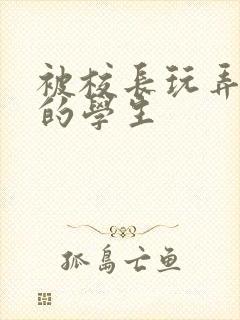 被校長玩弄
的學生
孤島亡鱼